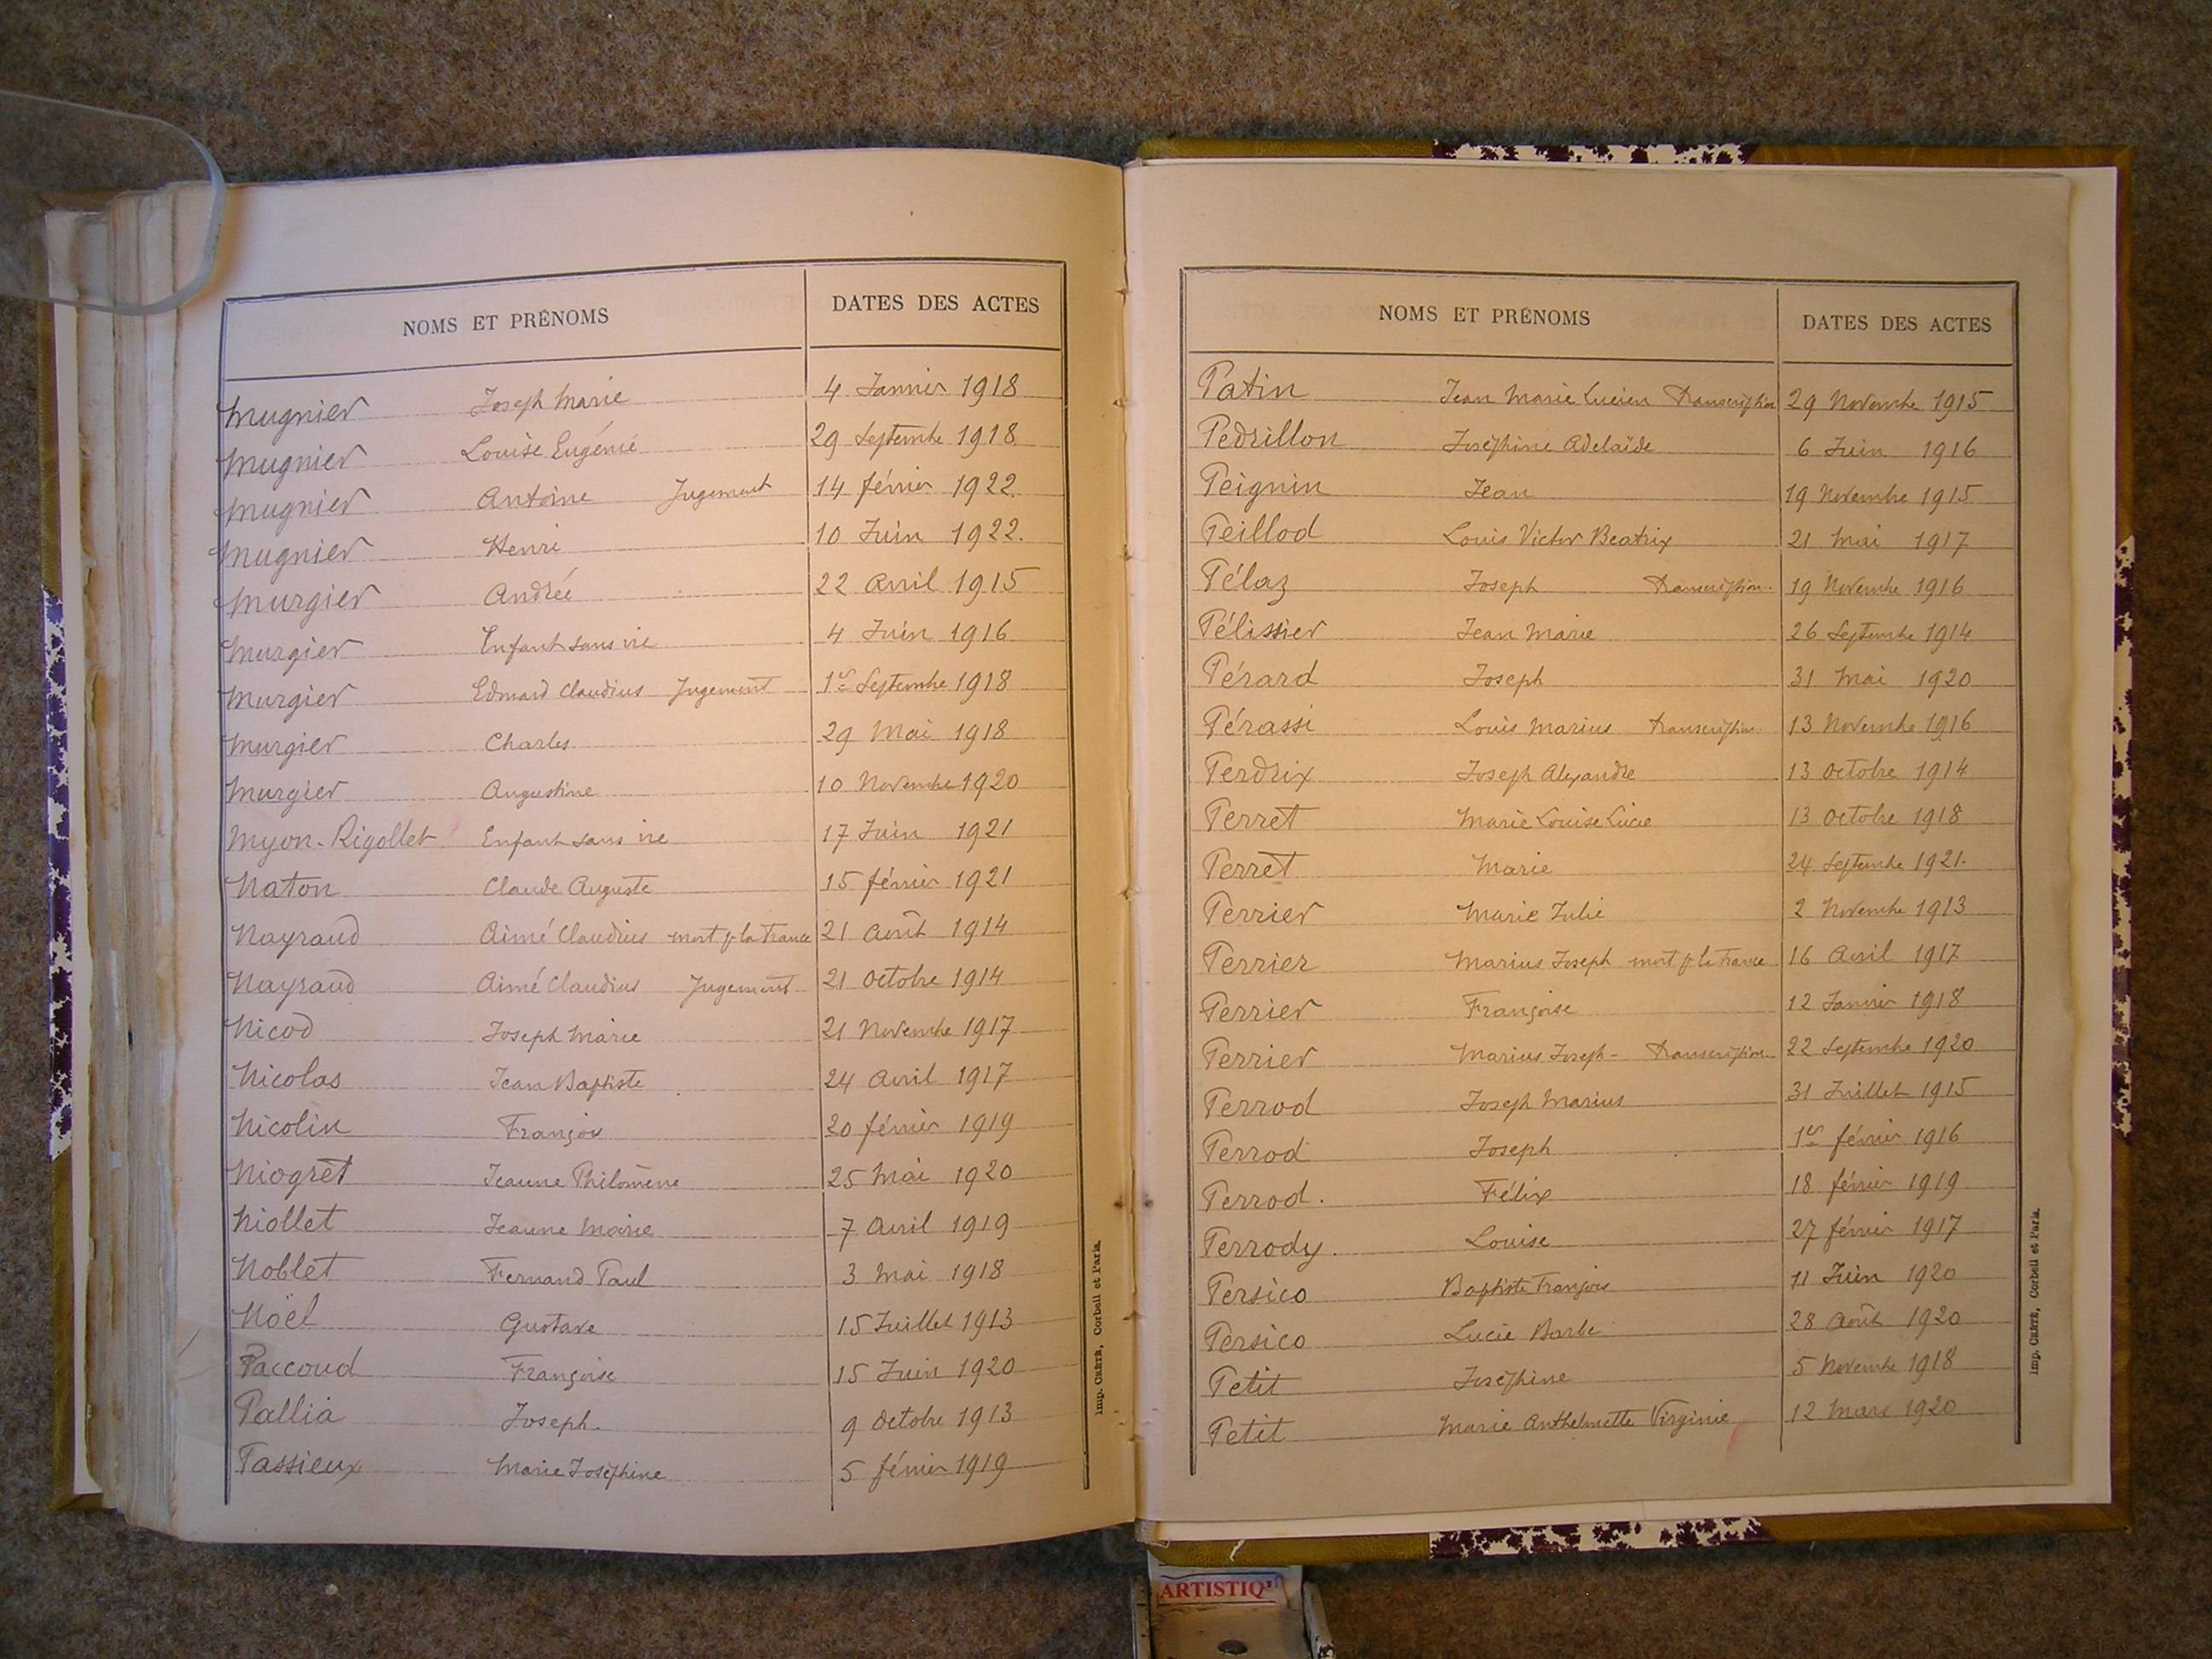 NOMS ET PRÉNOMS DATES DES ACTES
Mugnier Joseph Marie 4 Janvier 1918
Mugnier Louise Eugénie 29 Septembre 1918
Mugnier Antoine Jugement 14 février 1922
Mugnier Henri 10 Juin 1922.
Murgier Andrée 22 Avril 1915
Murgier Enfant sans vie 4 Juin 1916
Murgier Edmard Claudius Jugement 1er Septembre 1918
Murgier Charles 29 Mai 1918
Murgier Augustine 10 Novembre 1920
Myon-Rigollet Enfant sans vie 17 Juin 1921
Naton Claude Auguste 15 février 1921
Nayraud Aimé Claudius mort p la France 21 Août 1914
Nayraud Aimé Claudius Jugement 21 Octobre 1914
Nicod Joseph Marie 21 Novembre 1917
Nicolas Jean Baptiste 24 Avril 1917
Nicolin François 20 février 1919
Niogret Jeanne Philomène 25 Mai 1920
Niollet Jeanne Marie 7 Avril 1919
Noblet Fernand Paul 3 Mai 1918
Noël Gustave 15 Juillet 1913
Paccoud Françoise 15 Juin 1920
Pallia Joseph. 9 Octobre 1913
Passieux Marie Joséphine 5 février 1919
Imp. CRÉTÉ, Corbeil et Paris.
NOMS ET PRÉNOMS DATES DES ACTES
Patin Jean Marie Lucien Transcription 29 Novembre 1915
Pedrillon Joséphine Adelaïde 6 Juin 1916
Peignin Jean 19 Novembre 1915
Peillod Louis Victor Beatrix 21 Mai 1917
Pélaz Joseph Transcription. 19 Novembre 1916
Pélissier Jean Marie 26 Septembre 1914
Pérard Joseph 31 Mai 1920
Pérassi Louis Marius Transcription. 13 Novembre 1916
Perdrix Joseph Alexandre 13 Octobre 1914
Perret Marie Louise Lucie 13 Octobre 1918
Perret Marie 24 Septembre 1921.
Perrier Marie Julie 2 Novembre 1913
Perrier Marius Joseph mort p la France 16 Avril 1917
Perrier Françoise 12 Janvier 1918
Perrier Marius Joseph - Transcription 22 Septembre 1920
Perrod Joseph Marius 31 Juillet 1915
Perrod Joseph 1er février 1916
Perrod. Félix 18 février 1919
Perrody. Louise 27 février 1917
Persico Baptiste François 11 Juin 1920
Persico Lucie Barbe 28 Août 1920
Petit Joséphine 5 Novembre 1918
Petit Marie Anthelmette Virginie 12 Mars 1920
Imp. CRÉTÉ, Corbeil et Paris.
ARTISTIQ'